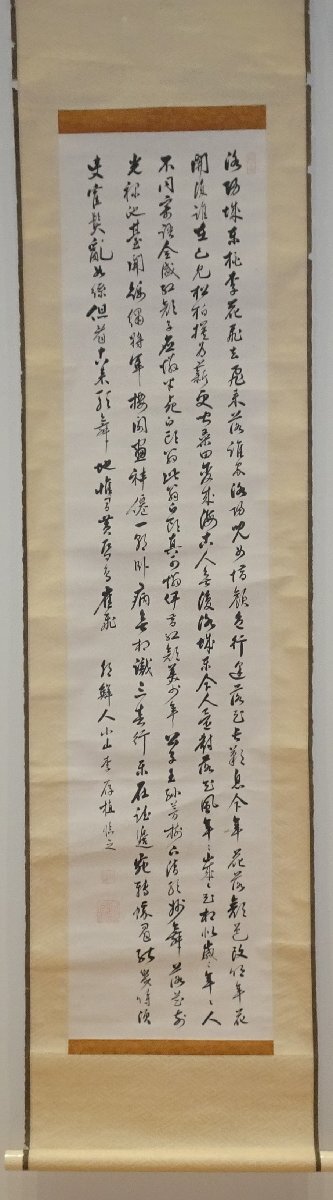 洛陽城東桃李花飛去飛來落誰家洛陽兒女惜顔色行逢落花長歎息今年花落顔色改明年花
開復誰在已見松柏摧爲薪更聞桑田變成海古人無復洛城東今人還對落花風年〻歲〻花相似歲〻年〻人
不同寄語全盛紅顔子應憐半死白頭翁此翁白頭真可憐伊昔紅顔美少年公子王孫芳樹下清歌妙舞落花前
光祿池臺開錦繡將軍樓閣畫神僊一朝臥病無相識三春行樂在誰邊宛轉蛾眉能幾時須
臾鶴髮亂如絲但看古來歌舞地惟有黄昏鳥雀飛 朝鮮人小山李